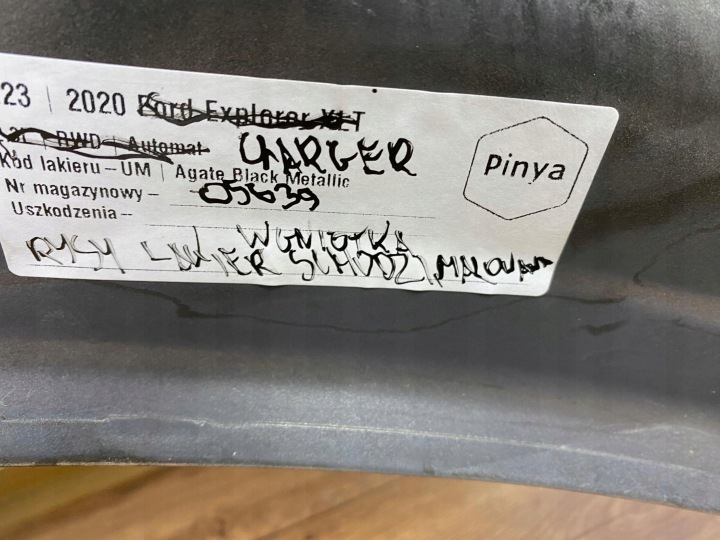 23 | 2020 Ford Explorer XLT
RWD | Automat
CHARGER
Kod lakieru – UM | Agate Black Metallic
Nr magazynowy – 05639
Uszkodzenia –
WGNIOTKA
RYSY LAKIER SCHODZI, MALOWANY
Pinya